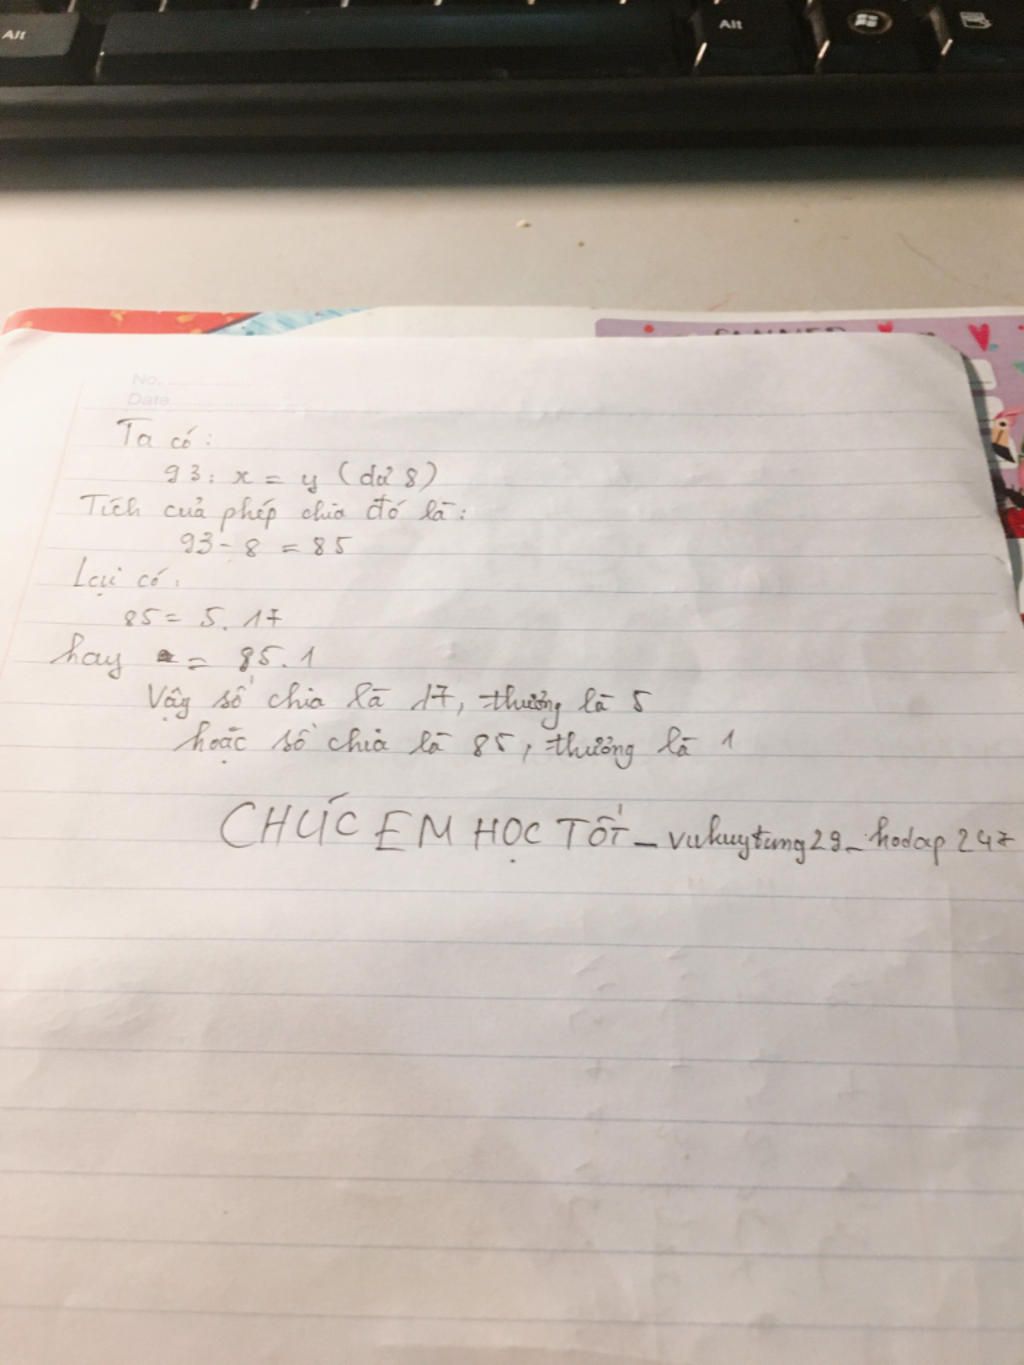 Alt
Alt
No.
Date
Ta có:
93: x = y (dư 8)
Tích của phép chia đó là:
93 - 8 = 85
Lại có:
85 = 5. 17
hay = 85. 1
Vậy số chia là 17, thưởng là 5
hoặc số chia là 85, thưởng là 1
CHÚC EM HỌC TỐT _ vukuytung29_ hodap 247